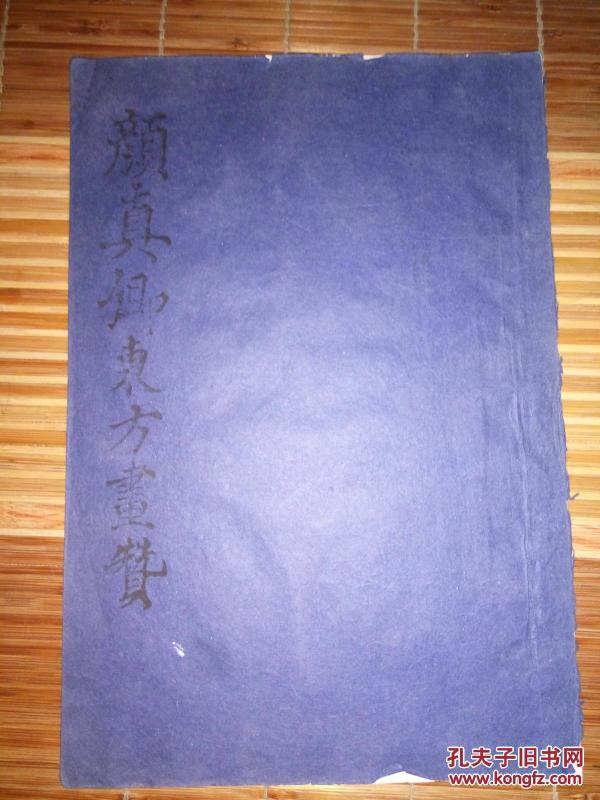 顔真卿東方畫贊
孔夫子旧书网
www.kongfz.com